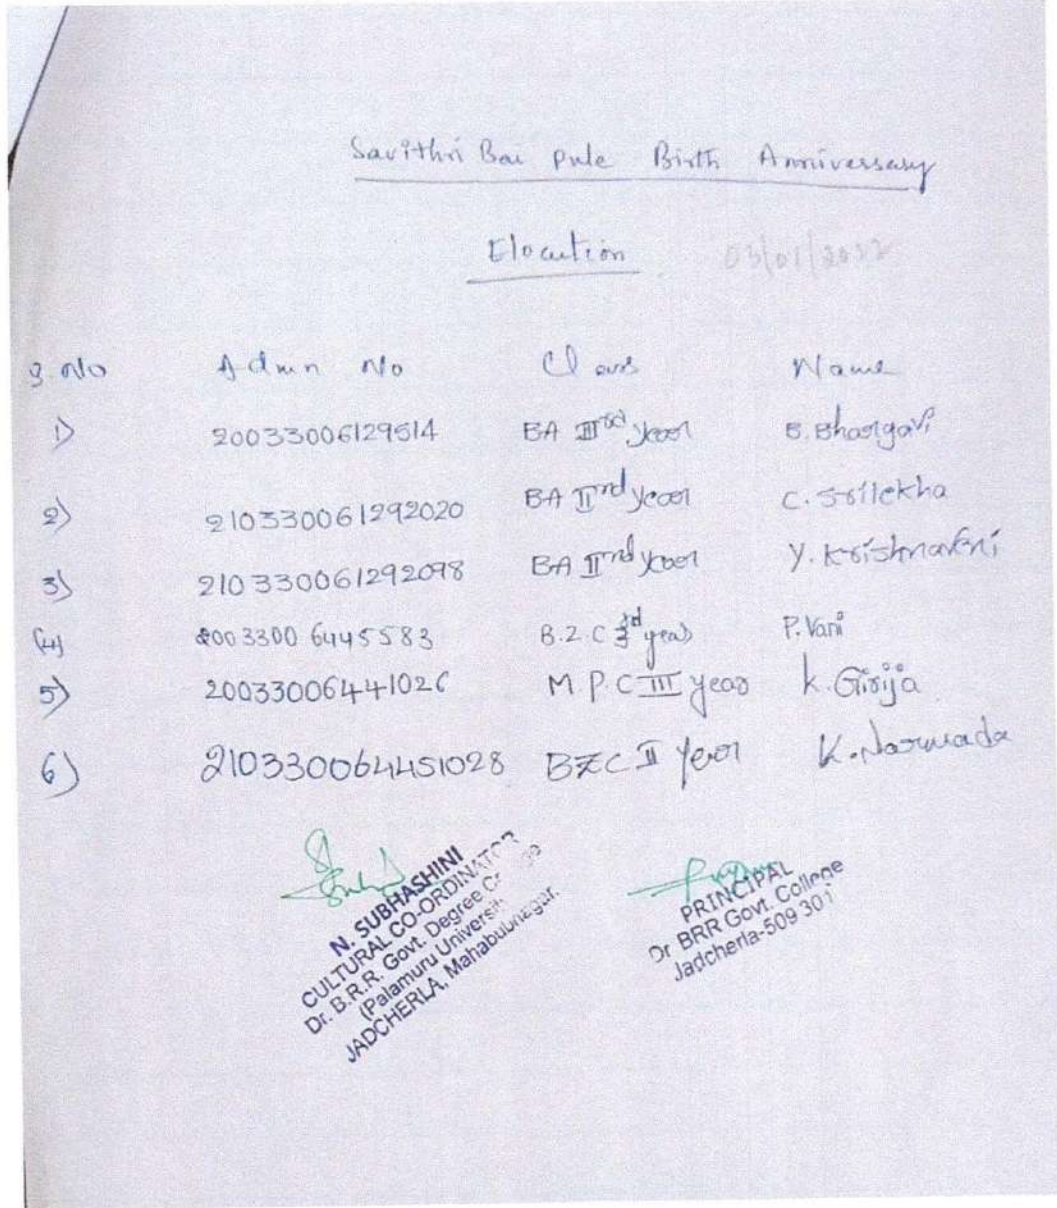 Savithri Bai pule Birth Anniversary
Elocution 03/01/2022
S.No Admn No Class Name
1) 20033006129514 BA IIIrd year B. Bhargavi
2) 210330061292020 BA IInd year C. Srilekha
3) 210330061292098 BA IInd year Y. Krishnaveni
(4) 2003300 6445583 B.Z.C 3rd year P. Vani
5) 20033006441026 M.P.C III year K. Girija
6) 210330064451028 BZC II year K. Narmada
N. SUBHASHINI
CULTURAL CO-ORDINATOR
Dr. B.R.R. Govt. Degree
(Palamuru
JADCHERLA, Mahabubnagar.
PRINCIPAL
Dr BRR Govt. College
Jadcherla-509 301